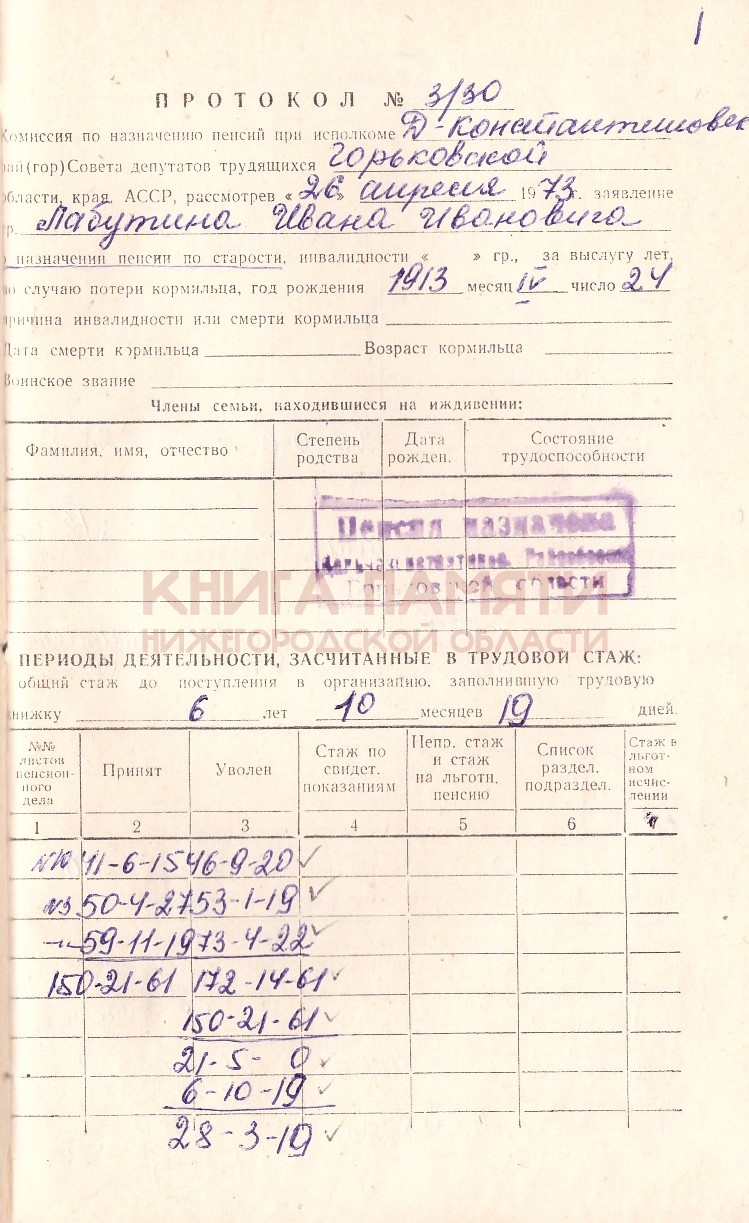 1
ПРОТОКОЛ № 3/30
Комиссия по назначению пенсий при исполкоме Д-Константиновск
рай(гор)Совета депутатов трудящихся Горьковской
области, края, АССР, рассмотрев «26» апреля 1973 г. заявление
гр. Лабутина Ивана Ивановича
о назначении пенсии по старости, инвалидности « » гр., за выслугу лет,
по случаю потери кормильца, год рождения 1913 месяц IV число 24
Причина инвалидности или смерти кормильца
Дата смерти кормильца Возраст кормильца
Воинское звание
Члены семьи, находившиеся на иждивении:
Фамилия, имя, отчество Степень родства Дата рожден. Состояние трудоспособности
Пенсия назначена
Горьковской области
КНИГА ПАМЯТИ
НИЖЕГОРОДСКОЙ ОБЛАСТИ
ПЕРИОДЫ ДЕЯТЕЛЬНОСТИ, ЗАСЧИТАННЫЕ В ТРУДОВОЙ СТАЖ:
общий стаж до поступления в организацию, заполнившую трудовую
книжку 6 лет 10 месяцев 19 дней.
№№ листов пенсионного дела Принят Уволен Стаж по свидет. показаниям Непр. стаж и стаж на льготн. пенсию Список раздел. подраздел. Стаж в льготном исчислении
1 2 3 4 5 6
41-6-15 46-9-20
№3 50-4-27 53-1-19
-"- 59-11-19 73-4-22
150-21-61 172-14-61
150-21-61
21-5-0
6-10-19
28-3-19